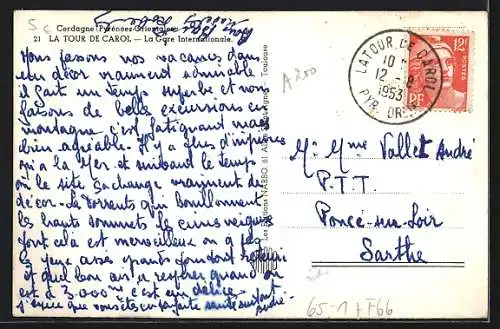 5c
Cerdagne (Pyrénées-Orientales)
21 LA TOUR DE CAROL — La Gare Internationale.
Nous passons nos vacances dans
un décor vraiment admirable
il fait un temps superbe et nous
faisons de belle excursions en
montagne c'est fatigant mais
bien agréable. Il y a plus d'imprévu
qu'à la Mer et suivant le temps
ou le site sa change vraiment de
décor. Le torrents qui bouillonnent
les hauts sommets le cimes neigeuses
tout cela est merveilleux on a pas
les yeux assez grands pour tout retenir
et quel bon air a respirer quand on
est à 3.000 m c'est un délice
j'espère que vous êtes en parfaite santé
André
Les Editions "NARBO" 61, Toulouse
A 200
LATOUR DE CAROL
10
12 - 8
1953
PYR. ORles
12F
POSTES
RF
M. Mme Vallet André
P.T.T.
Ponce-sur-Loir
Sarthe
65-1 + F66